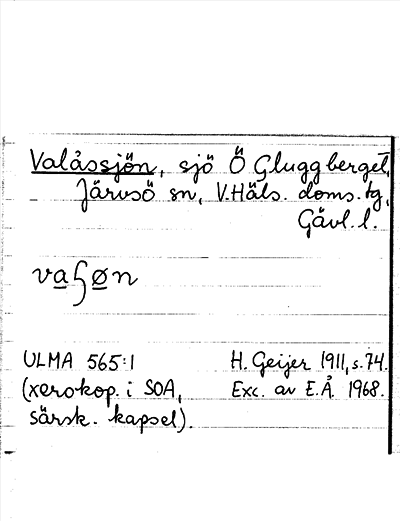 Valåssjön, sjö Ö Gluggberget,
Järvsö sn, V.Häls. doms.tg,
Gävl.l.
vaʂøn
ULMA 565:1 H. Geijer 1911, s.74.
(xerokop. i SOA, Exc. av E.Å. 1968.
särsk. kapsel).